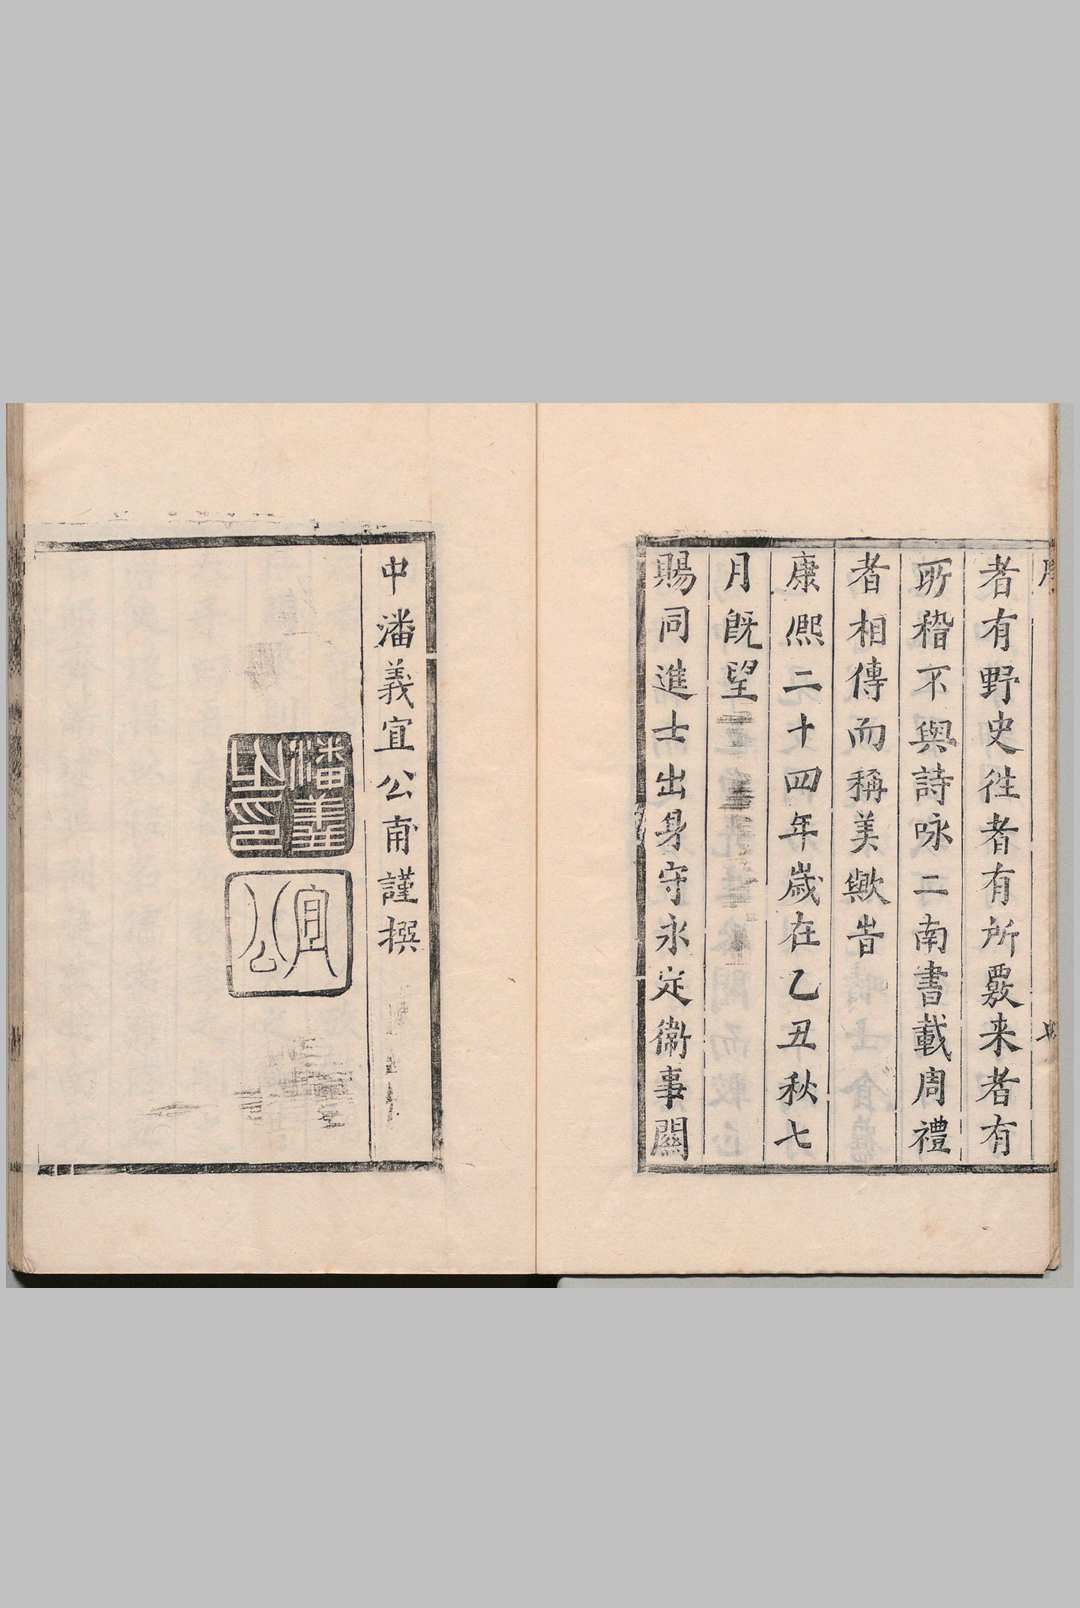 者有野史徃者有所覈来者有
所稽不與詩咏二南書載周禮
者相傳而稱美歟旹
康熙二十四年歲在乙丑秋七
月旣望
賜同進士出身守永定衞事關
中潘義宜公甫謹撰
潘義之印
宜公